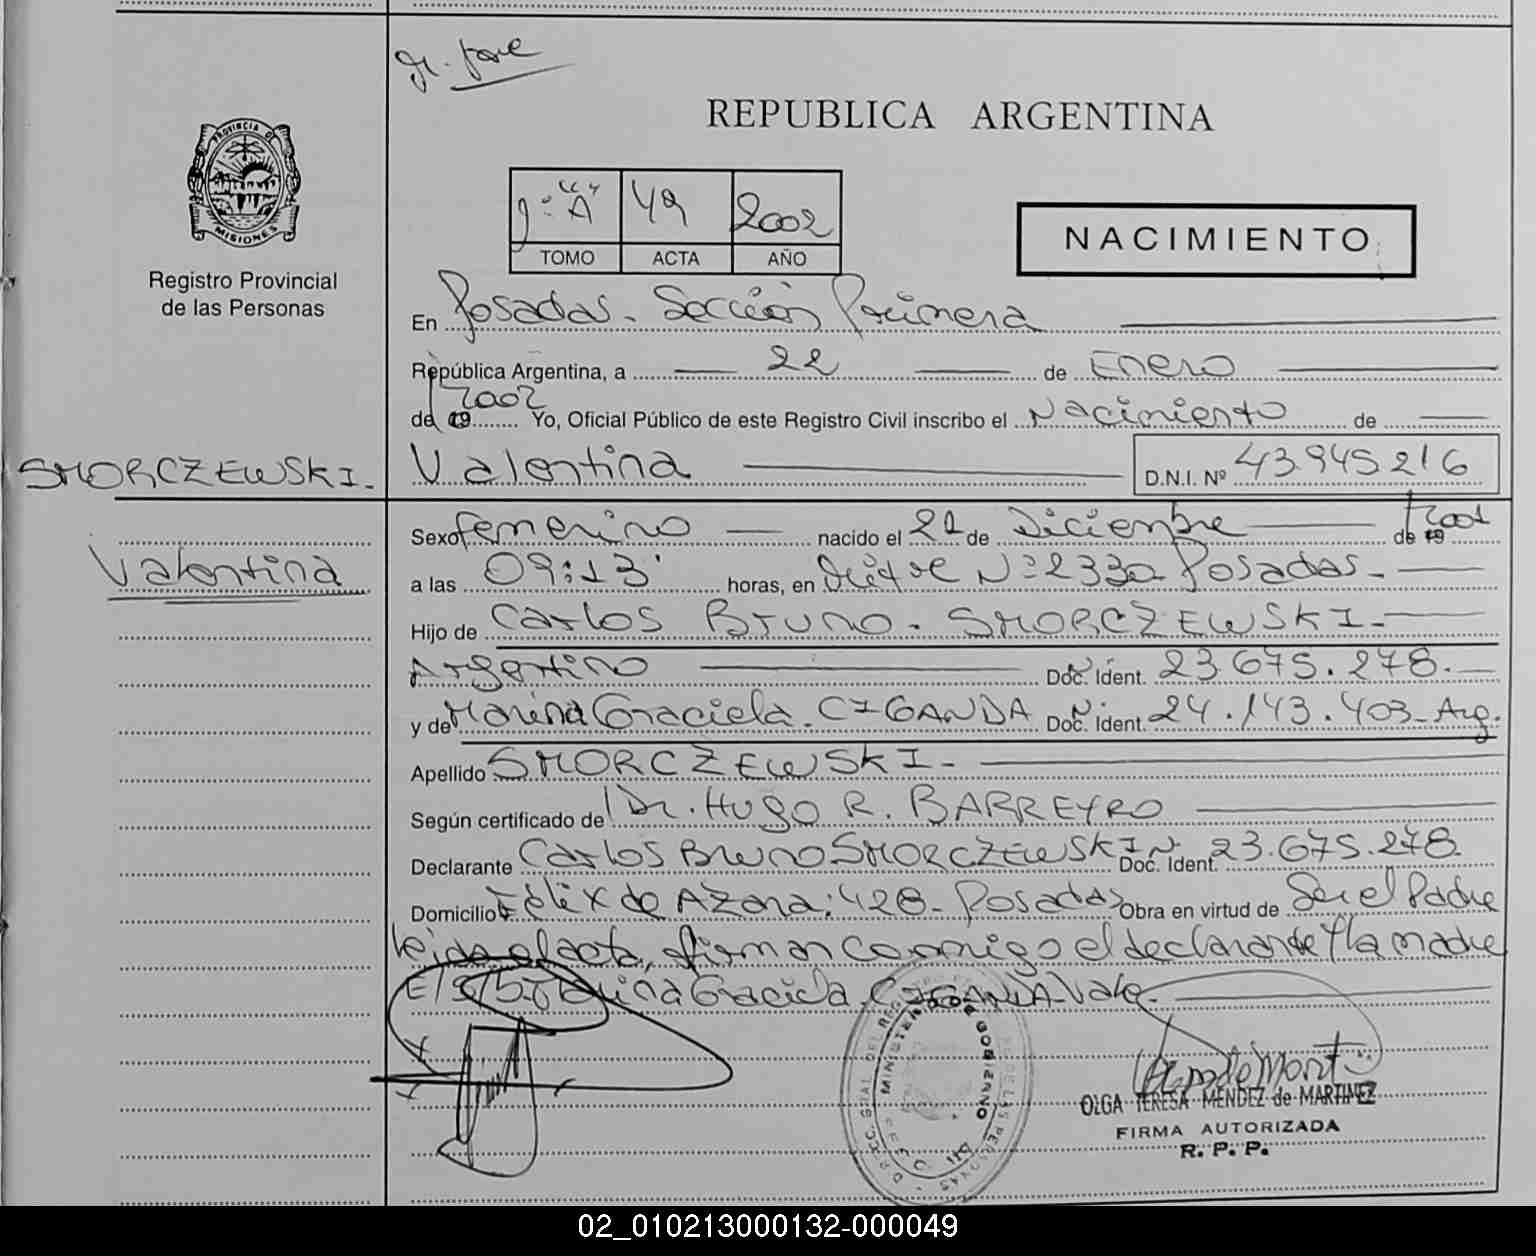 REPUBLICA ARGENTINA
PROVINCIA DE
MISIONES
Registro Provincial
de las Personas
1º "A" 49 2002
TOMO ACTA AÑO
NACIMIENTO
En Posadas - Sección Primera
República Argentina, a 22 de Enero
de 19 2002 Yo, Oficial Público de este Registro Civil inscribo el Nacimiento de
SMORCZEWSKI.-
Valentina D.N.I. Nº 43.945.216
Valentina
Sexo femenino nacido el 21 de Diciembre de 19 2001
a las 09:13' horas, en Nº 2330 Posadas.-
Hijo de Carlos Bruno. SMORCZEWSKI.-
Argentino Doc. Ident. 23.675.278.
y de Marina Graciela. CIGANDA Doc. Ident. 24.143.403-Arg.
Apellido SMORCZEWSKI.-
Según certificado de Dr. HUGO R. BARREYRO
Declarante Carlos Bruno SMORCZEWSKI Nº Doc. Ident. 23.675.278.
Domicilio Félix de AZARA: 428- Posadas Obra en virtud de Ser el Padre
leida el acta, firman conmigo el declarante y la madre
Graciela CIGANDA-Vale.-
MINISTERIO DE GOBIERNO
OLGA TERESA MENDEZ de MARTINEZ
FIRMA AUTORIZADA
R. P. P.
02_010213000132-000049